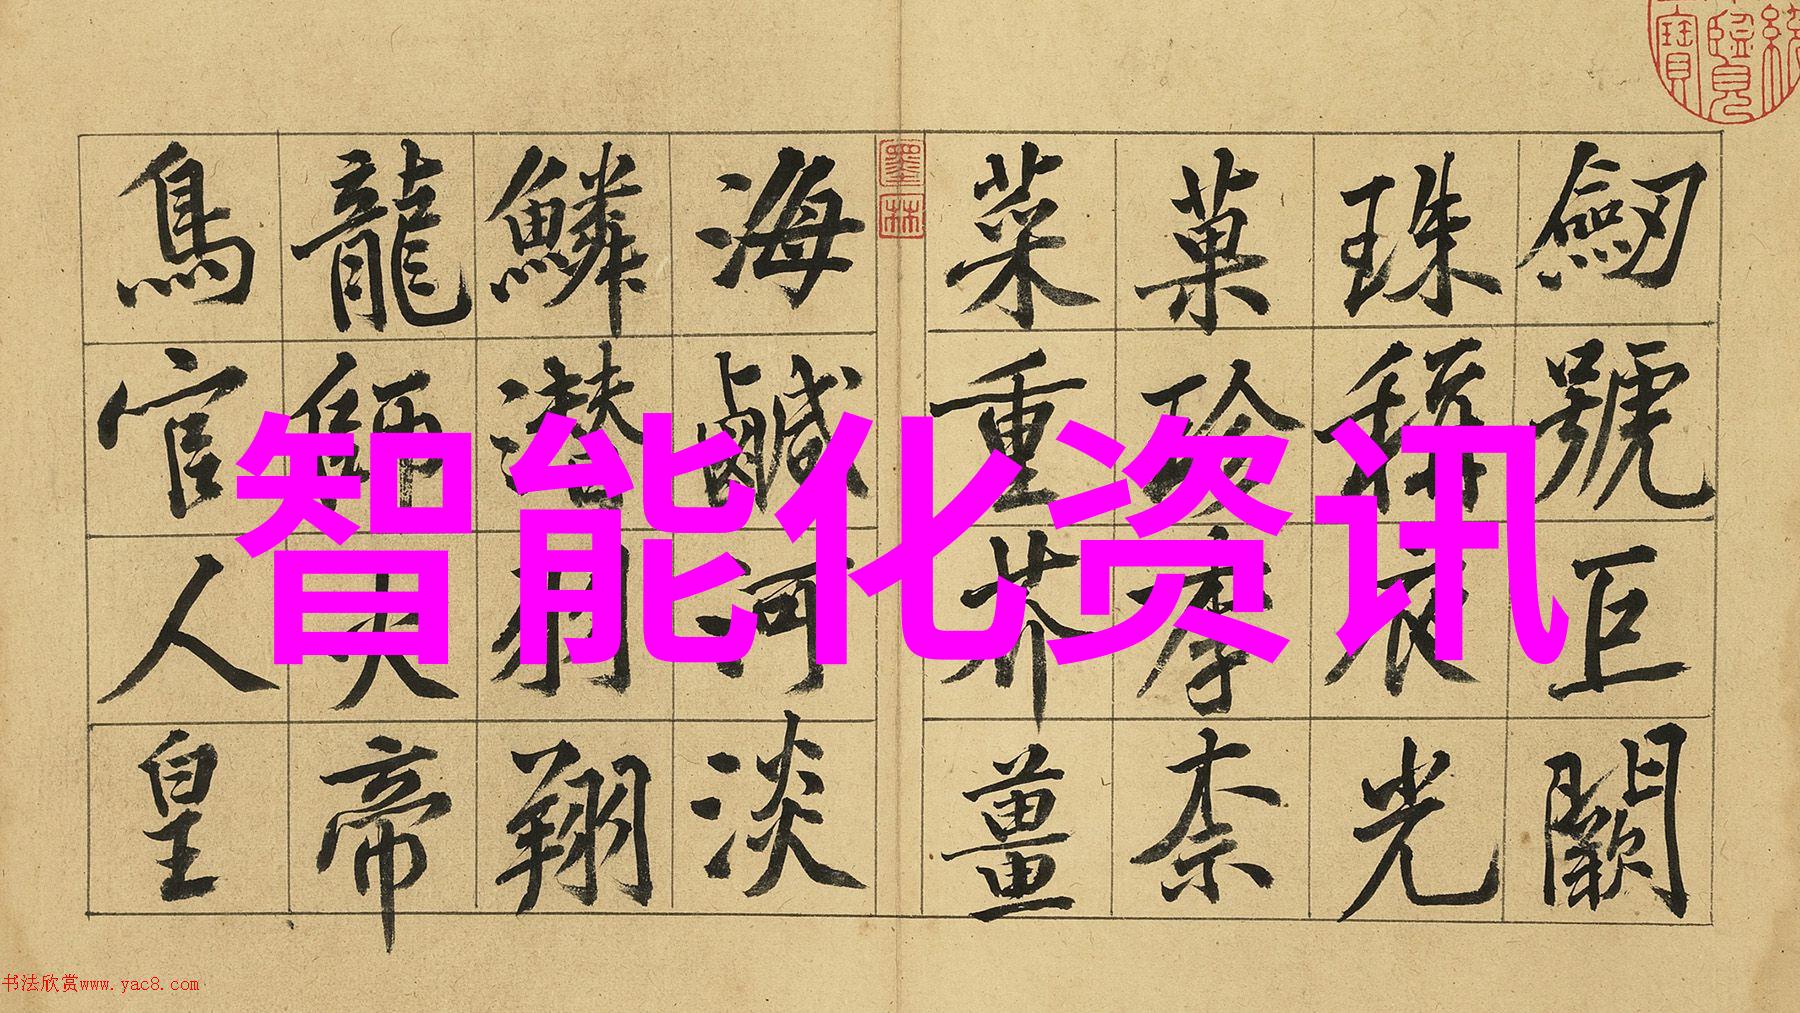 劒號巨闕
珠稱夜光
菓珍李奈
菜重芥薑
海鹹河淡
鱗潛羽翔
龍師火帝
鳥官人皇
墨林
智能化资讯
书法欣赏www.yac8.com